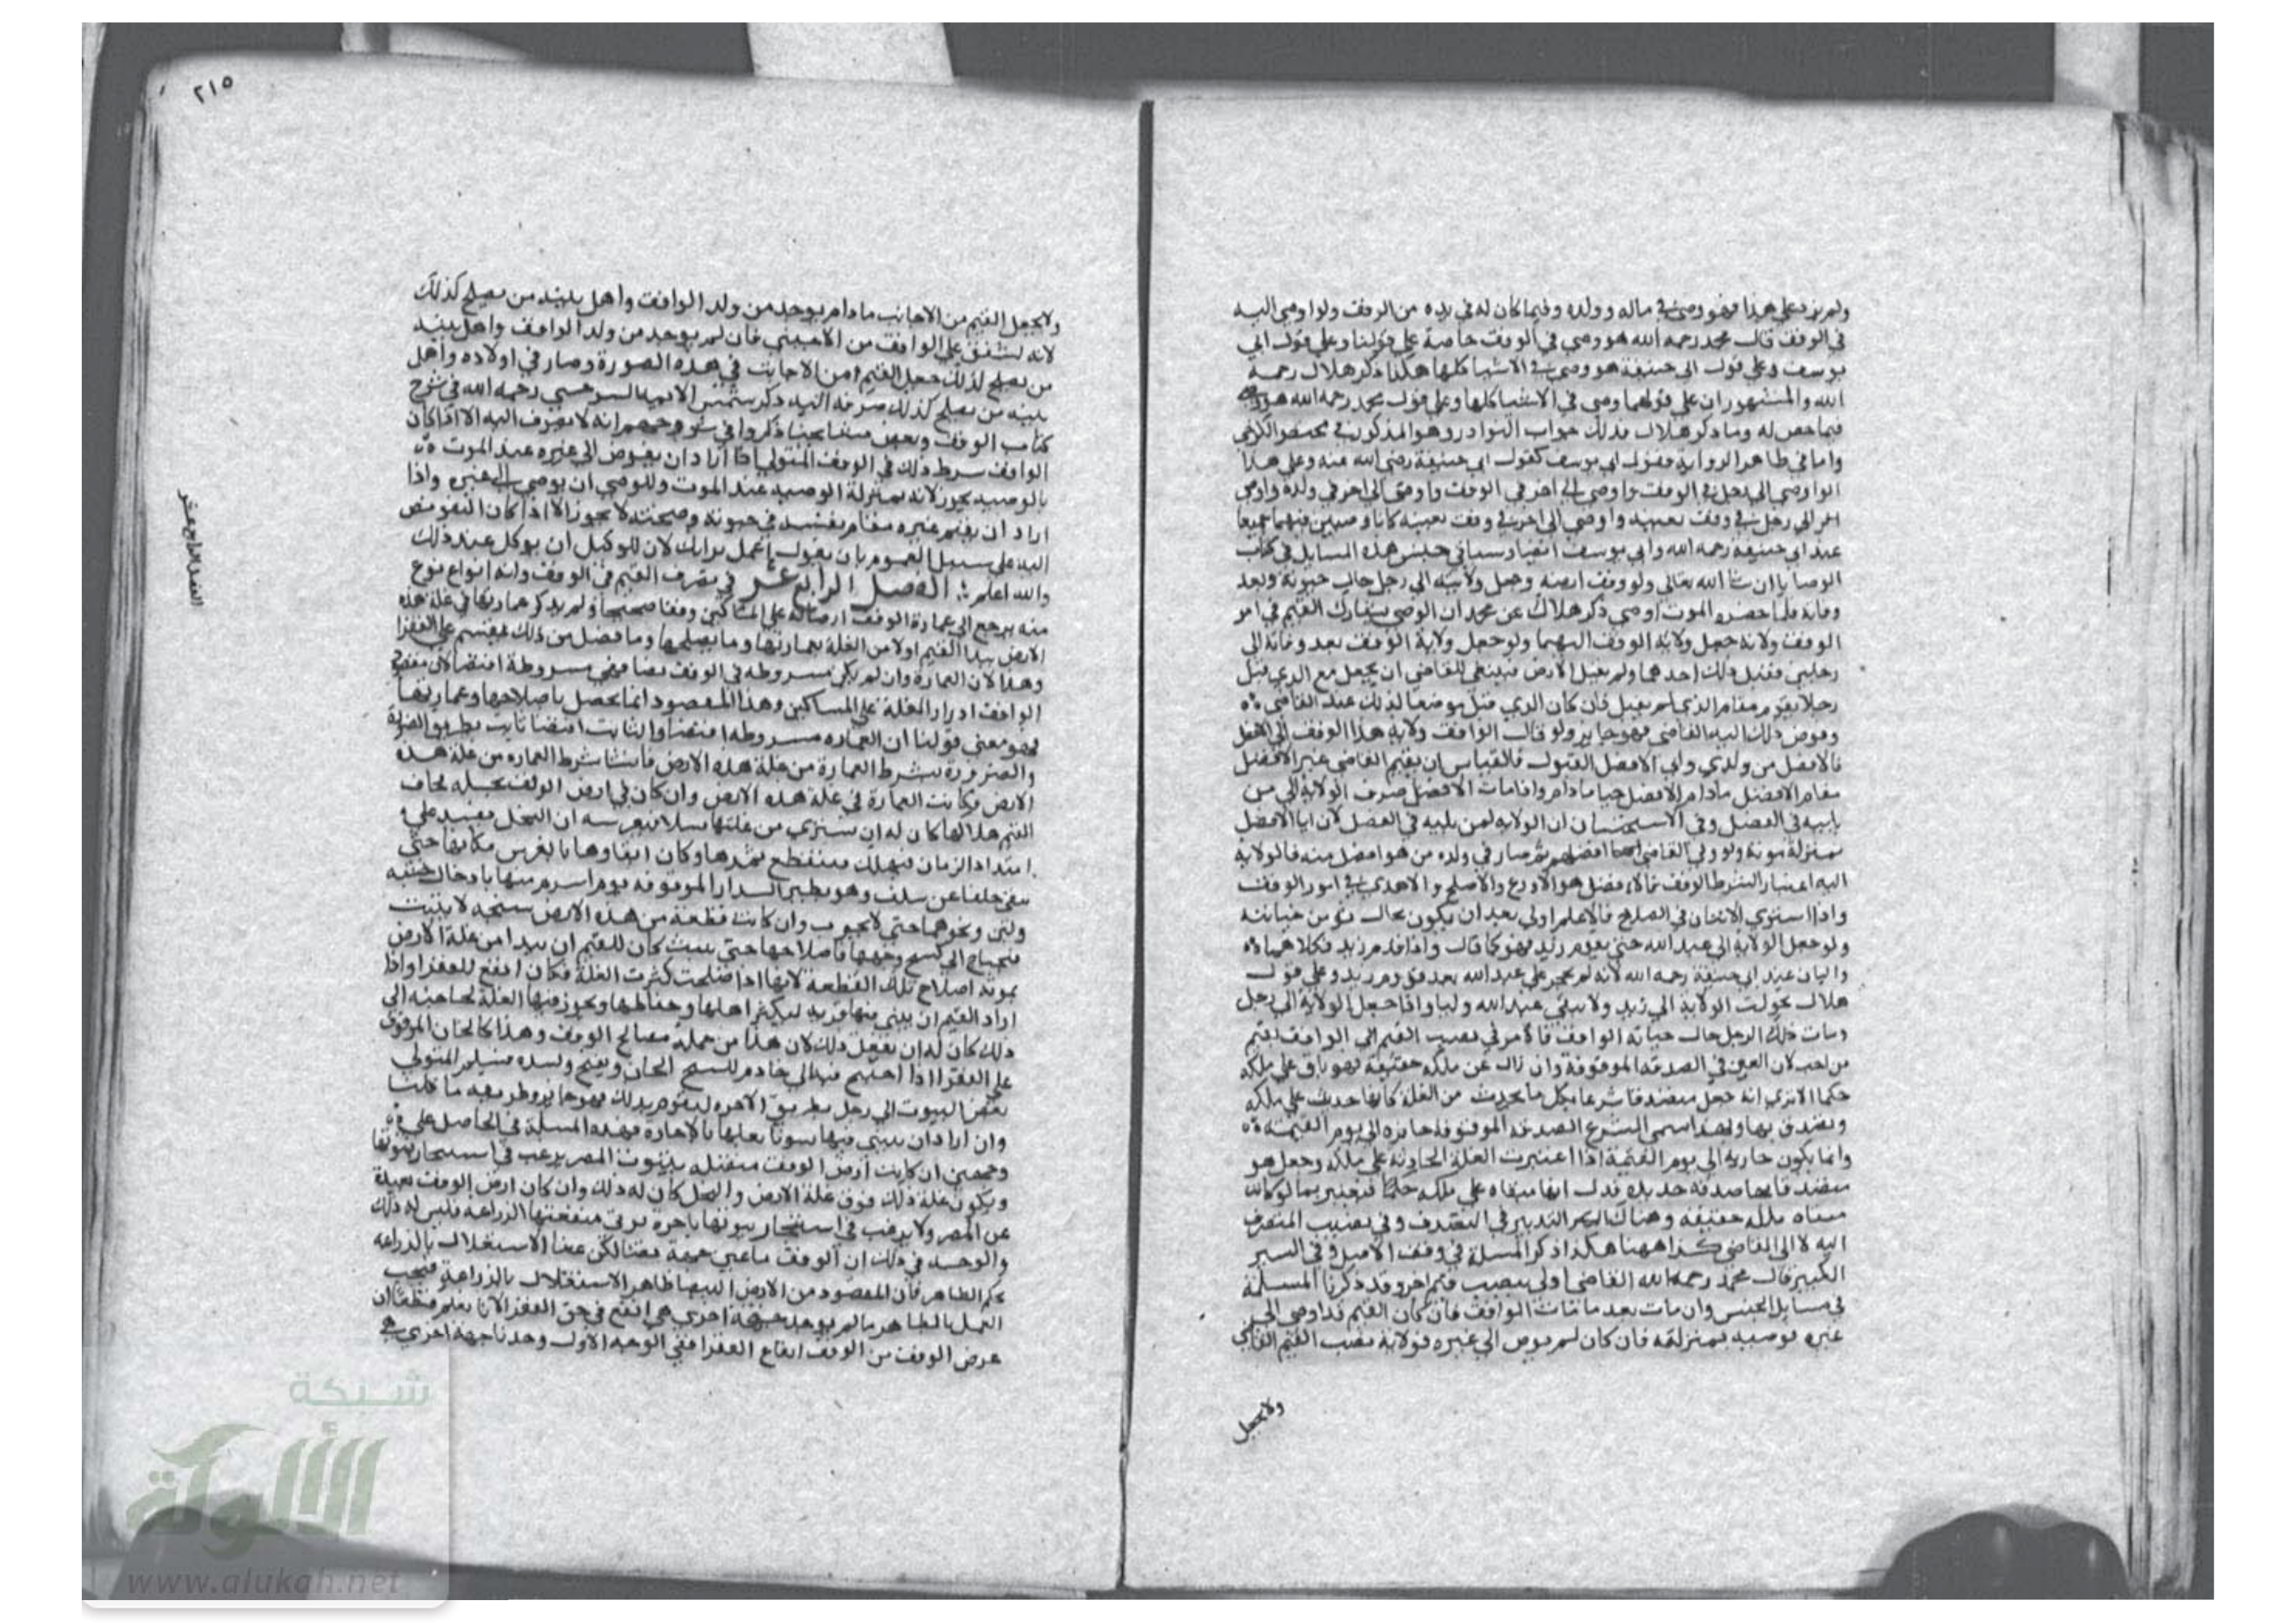 ولم يزد على هذا فهو وصي في ماله وولده وفيما كان له في يده من الوقف ولو اوصى اليه
في الوقف قال محمد رحمه الله هو وصي في الوقف خاصة على قولنا وعلى قول ابي
يوسف وعلى قول ابي حنيفة هو وصي في الاشيا كلها هكذا ذكر هلال رحمه
الله والمشهور ان على قولهما وصي في الاشيا كلها وعلى قول محمد رحمه الله هو وصي
فيما خص له وما ذكر هلال فذلك جواب النوادر وهو المذكور في مختصر الكرخي
واما في ظاهر الرواية فقول ابي يوسف كقول ابي حنيفة رضي الله عنه وعلى هذا
الو اوصي الى رجل في الوقف واوصى الى اخر في الوقف واوصى الى اخر في ولده واوصى
الى رجل في وقف بعينه واوصي الى اخر في وقف بعينه كانا وصيين فيهما جميعا
عند ابي حنيفة رحمه الله وابي يوسف ايضا وسياتي جنس هذه المسايل في كتاب
الوصايا ان شا الله تعالى ولو وقف ارضه وجعل ولايته الى رجل حال حيوته وبعد
وفاته فلما حضره الموت اوصي ذكر هلال عن محمد ان الوصي يشارك القيم في امر
الوقف ولانه جعل ولاية الوقف اليهما ولو جعل ولاية الوقف بعد وفاته الى
رجلين فقبل ذلك احدهما ولم يقبل الاخر فينبغي للقاضي ان يجعل مع الذي قبل
رجلا يقوم مقام الذي لم يقبل فان كان الذي قبل موضعا لذلك عند القاضي
وفوض ذلك اليه القاضي فهو جايز ولو قال الواقف ولاية هذا الوقف الى الافضل
فالافضل من ولدي وابى الافضل القبول فالقياس ان يقيم القاضي غير الافضل
مقام الافضل مادام الافضل حيا مادام واذا مات الافضل صرف الولاية الى من
يليه في الفضل وفي الاستحسان ان الولاية لمن يليه في الفضل لان ابا الافضل
بمنزلة موته ولو ولي القاضي افضلهم ثم صار في ولده من هو افضل منه فالولاية
اليه اعتبار الشرط الوقف ثم الافضل هو الاورع والاصلح والاهدي في امور الوقف
واذا استوي الاثنان في الصلاح فالاعلم اولي بعد ان يكون بحال يومن خيانته
ولو جعل الولاية الى عبد الله حتى يقوم زيد فهو كما قال واذا قدم زيد فكلاهما
واليان عند ابي حنيفة رحمه الله لانه لم يحجر على عبد الله بعد قدوم زيد وعلى قول
هلال تحولت الولاية الى زيد ولا يبقي عبد الله وليا واذا جعل الولاية الى رجل
ومات ذلك الرجل حال حياته الواقف فالامر في نصب القيم الى الواقف يقيم
من احب لان العين في الصدقة الموقوفة وان زال عن ملكه حقيقة فهو باق على ملكه
حكما الا ترى انه جعل متصدقا شرعا بكل ما يحدث من الغلة كانها حدث على ملكه
وتصدق بها ولهذا سمى الشرع الصدقة الموقوفة جايزه الى يوم القيمة
وانما يكون جارية الي يوم القيمة اذا اعتبرت الغلة الحادثة على ملكه وجعل هو
متصدقا بها صدقة جديدة فدل انها مبقاه على ملكه حكما فيعتبر بما لو كانت
مبقاه ملكه حقيقة وهناك التدبير في التصدق وفي نصيب المتصرف
اليه لا الى القاضي كذا ههنا هكذا ذكر المسلة في وقف الاصل وفي السير
الكبير قال محمد رحمه الله القاضي اولى بنصيب قيم اخر وقد ذكرنا المسلمة
في مسايل الحبس وان مات بعد ما مات الواقف فان كان القيم قد اوصي الى
غيره فوصيه بمنزلته فان كان لم يوص الي غيره فولاية نصب القيم القاضي
ولا يجعل
٢١٥
ولا يجعل القيم من الاجانب مادام يوجد من ولد الواقف واهل بيته من يصلح كذلك
لانه اشفق على الواقف من الاجنبي فان لم يوجد من ولد الواقف واهل بيته
من يصلح لذلك جعل القيم من الاجانب في هذه الصورة وصار في اولاده واهل
بيته من يصلح كذلك صرفه اليه ذكر شمس الايمه السرخسي رحمه الله في شرح
كتاب الوقف وبعض مشايخنا ذكروا في شروحهم انه لا يصرف اليه الا اذا كان
الواقف شرط ذلك في الوقف المتولي اذا اراد ان يفوض الى غيره عند الموت
بالوصية يجوز لانه بمنزلة الوصية عند الموت وللوصي ان يوصي الى غيره واذا
اراد ان يقيم غيره مقام نفسه في حيوته وصحته لا يجوز الا اذا كان التفويض
اليه على سبيل العموم بان يقول اعمل برايك لان للوكيل ان يوكل عند ذلك
والله اعلم الفصل الرابع عشر في تصرف القيم في الوقف وانه انواع نوع
منه يرجع الى عمارة الوقف ارضا له على المساكين وقفا صحيحا ولم يذكر عمارتها في غلة هذه
الارض يبدا القيم اولا من الغلة بعمارتها وما يصلحها وما فضل من ذلك يقسم على الفقرا
وهذا لان العمارة وان لم يكن مشروطه في الوقف نصا فهي مشروطة اقتضا لان مقصود
الواقف ادرار الغلة على المساكين وهذا المقصود انما يحصل باصلاحها وعمارتها
فهو معنى قولنا ان العمارة مشروطه اقتضا والثابت اقتضا ثابت بطريق الضرورة
والضرورة بشرط العمارة من غلة هذه الارض فاثبتنا شرط العمارة من غلة هذه
الارض فكانت العمارة في غلة هذه الارض وان كان في ارض الوقف نخيله يخاف
القيم هلاكها كان له ان يشتري من غلتها فسيلا فيغرسه ان النخل يفسد على
امتداد الزمان فيهلك فينقطع ثمرها وكان ابقاوها بالغرس مكانها حتى
يبقى خلفا عن سلف وهو نظير الدار الموقوفة يوم اسرم منها بادخال خشبه
ولبن ونحوهما حتى لا يخرب وان كانت قطعة من هذه الارض سبخه لا ينبت
فيحتاج الى كسح وجهها فاصلاحها حتى ينبت كان للقيم ان يبدا من غلة الارض
بمونة اصلاح تلك القطعة لانها اذا صلحت كثرت الغلة فكان انفع للفقرا واذا
اراد القيم ان يبني فيها قرية ليكثر اهلها وحفاظها ويحوز فيها الغلة لحاجته الى
ذلك كان له ان يفعل ذلك لان هذا من جملة مصالح الوقف وهذا كالخان الموقوف
على الفقرا اذا احتيج فيه الى خادم للسح الخان ويفتح ويسده فيسلم المتولي
بعض البيوت الى رجل بطريق الاجره ليقوم بذلك فهو جايز وطريقه ما قلنا
وان اراد ان يبني فيها بيوتا يغلها بالاجارة فهذه المسلة في الحاصل على
وجهين ان كانت ارض الوقف متصله ببيوت المصر يرغب في استيجار بيوتها
ويكون غلة ذلك فوق غلة الارض والنخل كان له ذلك وان كان ارض الوقف بعيدة
عن المصر ولا يرغب في استيجار بيوتها باجرة توفي منفعتها الزراعة فليس له ذلك
والوجه في ذلك ان الوقف ما عين جهة نصا لكن عينا الاستغلال بالزراعه
بحكم الظاهر فان المقصود من الارض البيضا ظاهر الاستغلال بالزراعة فيجب
العمل بالظاهر ما لم يوجد جهة اخرى هي انفع في حق الفقرا لانا نعلم قطعا ان
غرض الوقف من الوقف انفاع الفقرا ففي الوجه الاول وجدنا جهة اخرى هي
الفصل الرابع عشر
شبكة
الألوكة
www.alukah.net